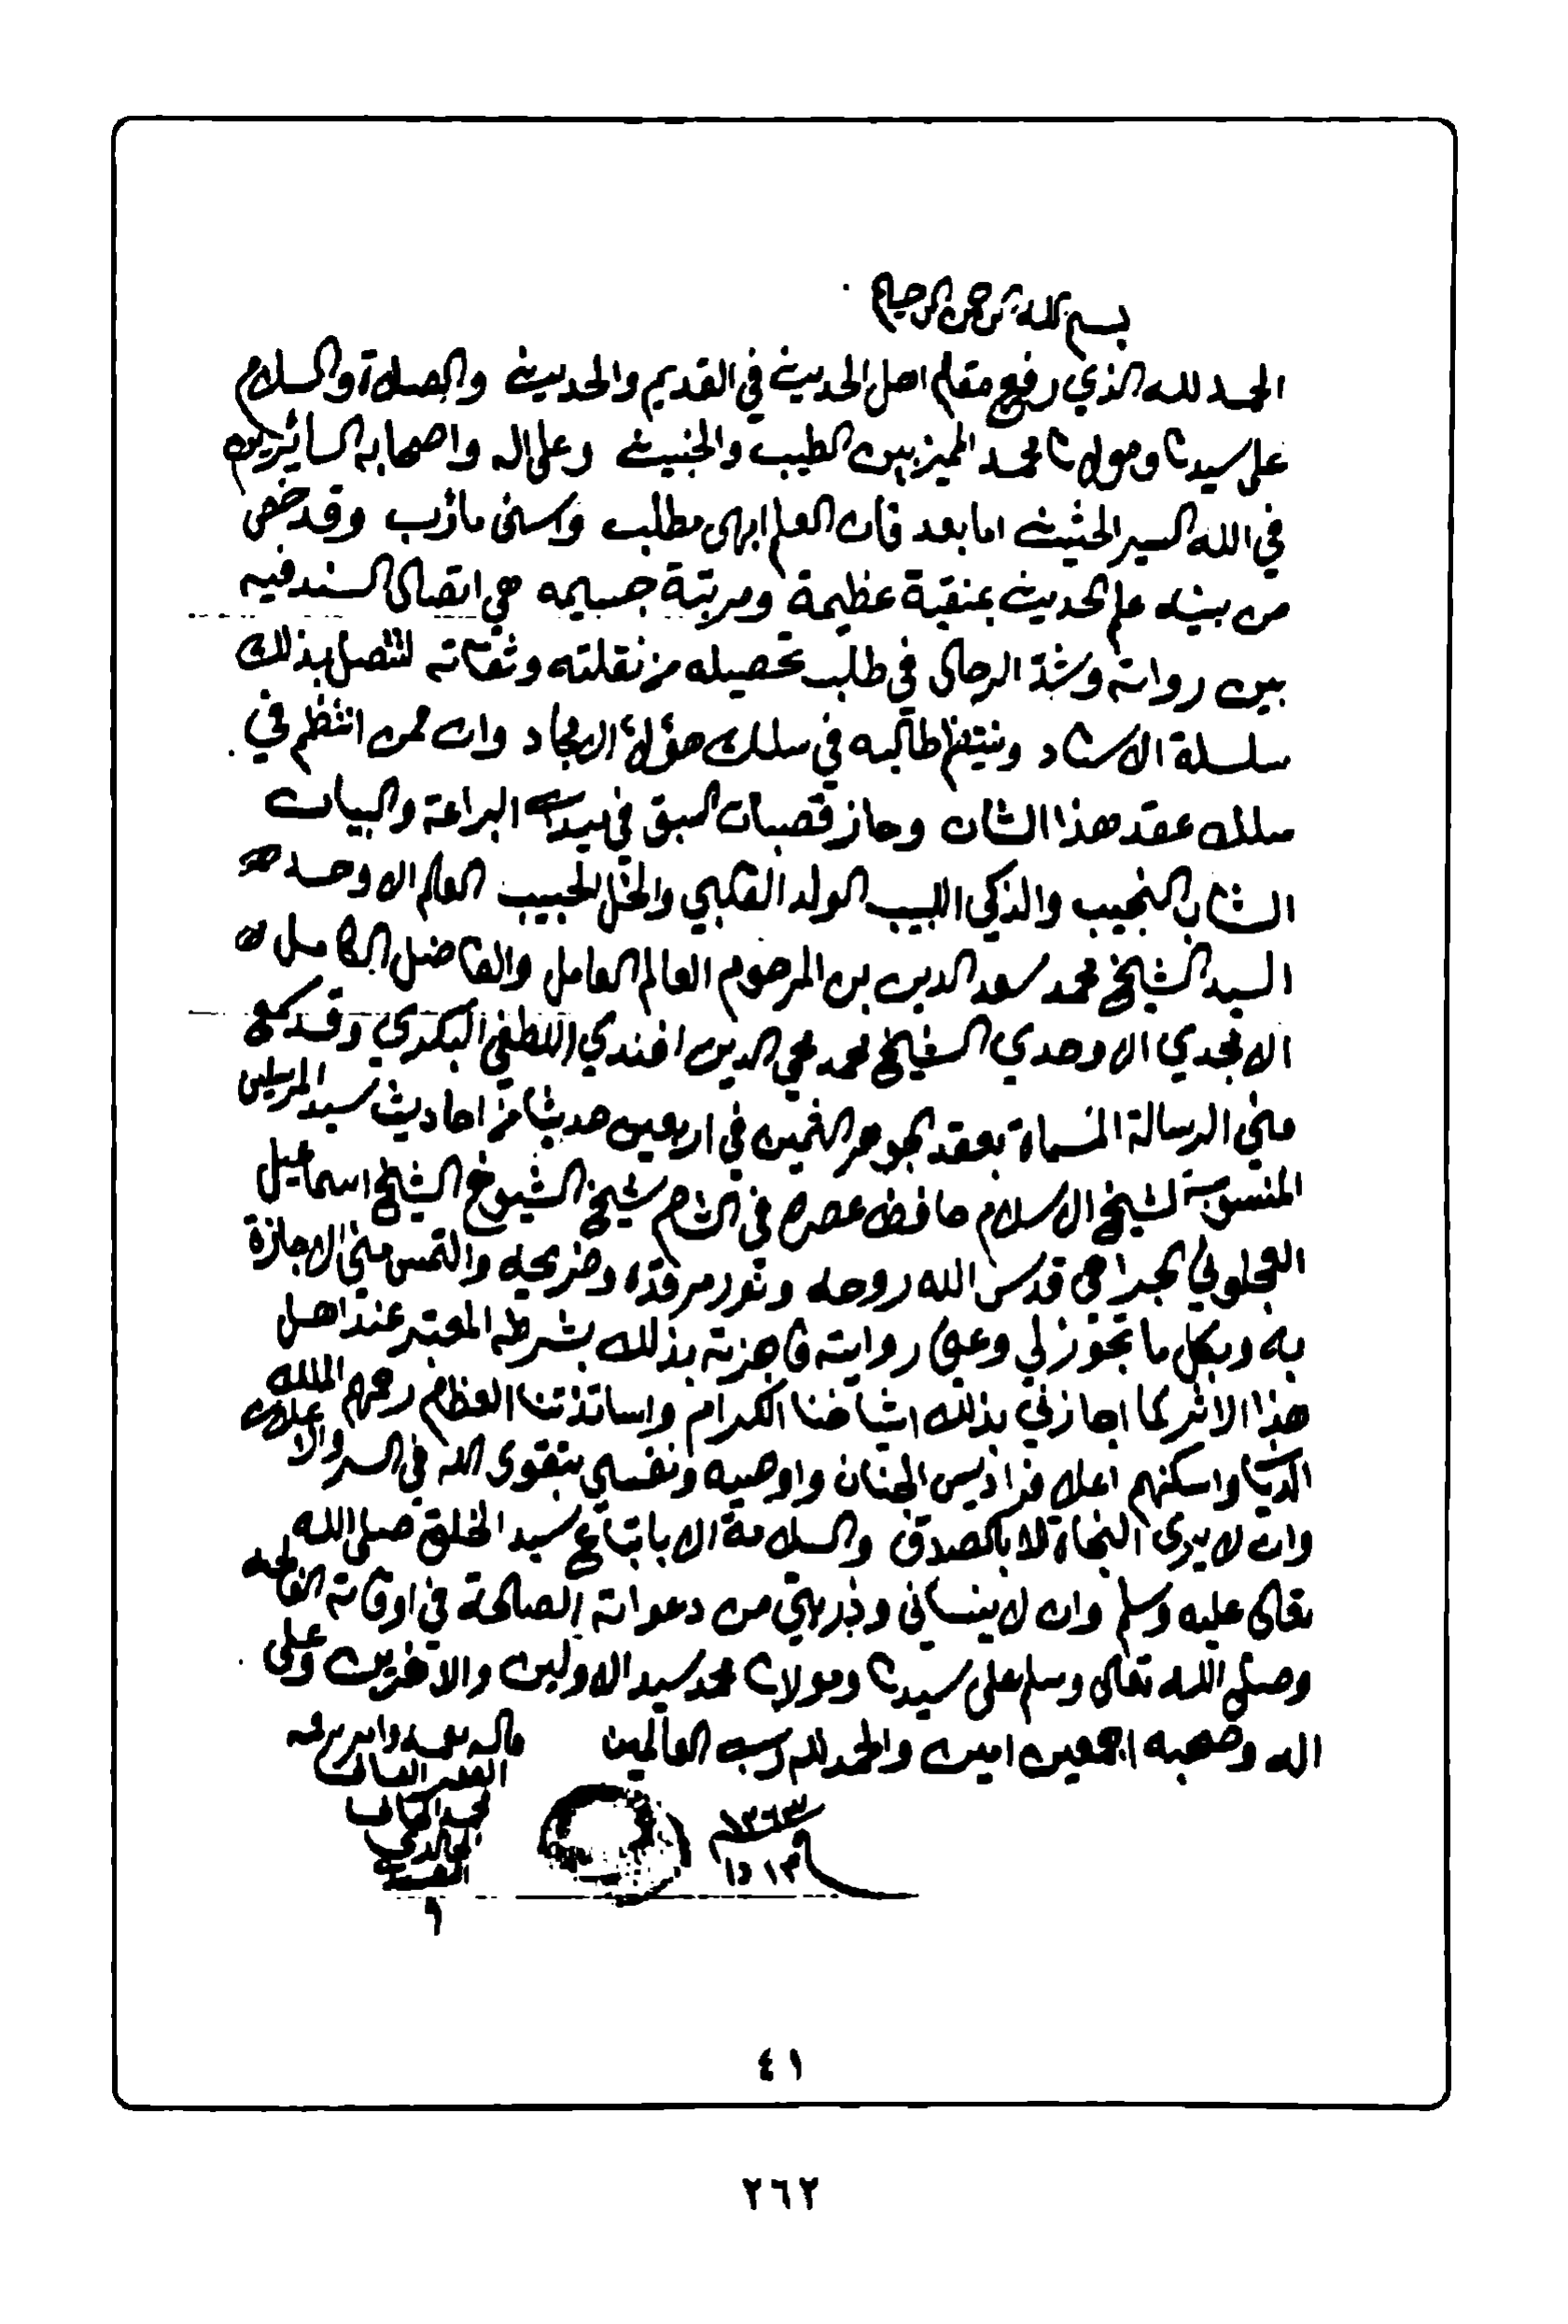 بسم الله الرحمن الرحيم
الحمد لله الذي رفع مقام اهل الحديث في القديم والحديث والصلاة والسلام
على سيدنا ومولانا محمد المميز بين الطيب والخبيث وعلى اله واصحابه السائرين
في الله السير الحثيث اما بعد فان العلم ابهى مطلب واسنى مأرب وقد خص
من بينه علم الحديث بمنقبة عظيمة ومرتبة جسيمه هي اتصال السند فيه
بين رواته وشد الرحال في طلب تحصيله من نقلته وثقاته لتتصل بذلك
سلسلة الاسناد وينتظم طالبه في سلك هؤلاء الامجاد وان ممن انتظم في
سلك عقد هذا الشان وحاز قصبات السبق في ميدان البراعة والبيان
الشاب النجيب والذكي اللبيب الولد القلبي والخل الحبيب العالم الاوحد
السيد الشيخ محمد سعد الدين بن المرحوم العالم العامل والفاضل الكامل
الامجدي الاوحدي الشيخ محمد محي الدين افندي اللطفي البكري وقد سمع
مني الرسالة المسماة بعقد الجوهر الثمين في اربعين حديثا من احاديث سيد المرسلين
المنسوبة لشيخ الاسلام حافظ عصره في الشام شيخ الشيوخ الشيخ اسماعيل
العجلوني الجراحي قدس الله روحه ونور مرقده وضريحه والتمس مني الاجازة
به وبكل ما تجوز لي وعني روايته فاجزته بذلك بشرطه المعتبر عند اهل
هذا الاثر كما اجازني بذلك اشياخنا الكرام واساتذتنا العظام رحمهم الملك
الديان واسكنهم اعلا فراديس الجنان واوصيه ونفسي بتقوى الله في السر والاعلان
وان لا يرى النجاة الا بالصدق والسلامة الا باتباع سيد الخلق صلى الله
تعالى عليه وسلم وان لا ينساني وذريتي من دعواته الصالحة في اوقاته
وصلى الله تعالى وسلم على سيدنا ومولانا محمد سيد الاولين والاخرين وعلى
اله وصحبه اجمعين امين والحمد لله رب العالمين
قاله بفمه وامر برقمه
الفقير
محمد
٤١
٢٦٢